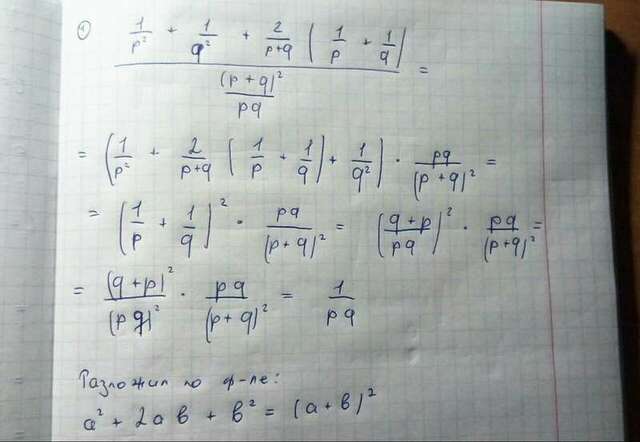 ① (1/p² + 1/q² + 2/(p+q) (1/p + 1/q)) / ((p+q)²/pq) =
= (1/p² + 2/(p+q) (1/p + 1/q) + 1/q²) · pq/(p+q)² =
= (1/p + 1/q)² · pq/(p+q)² = ((q+p)/pq)² · pq/(p+q)² =
= (q+p)²/(pq)² · pq/(p+q)² = 1/pq
Разложил по ф-ле:
a² + 2ab + b² = (a+b)²